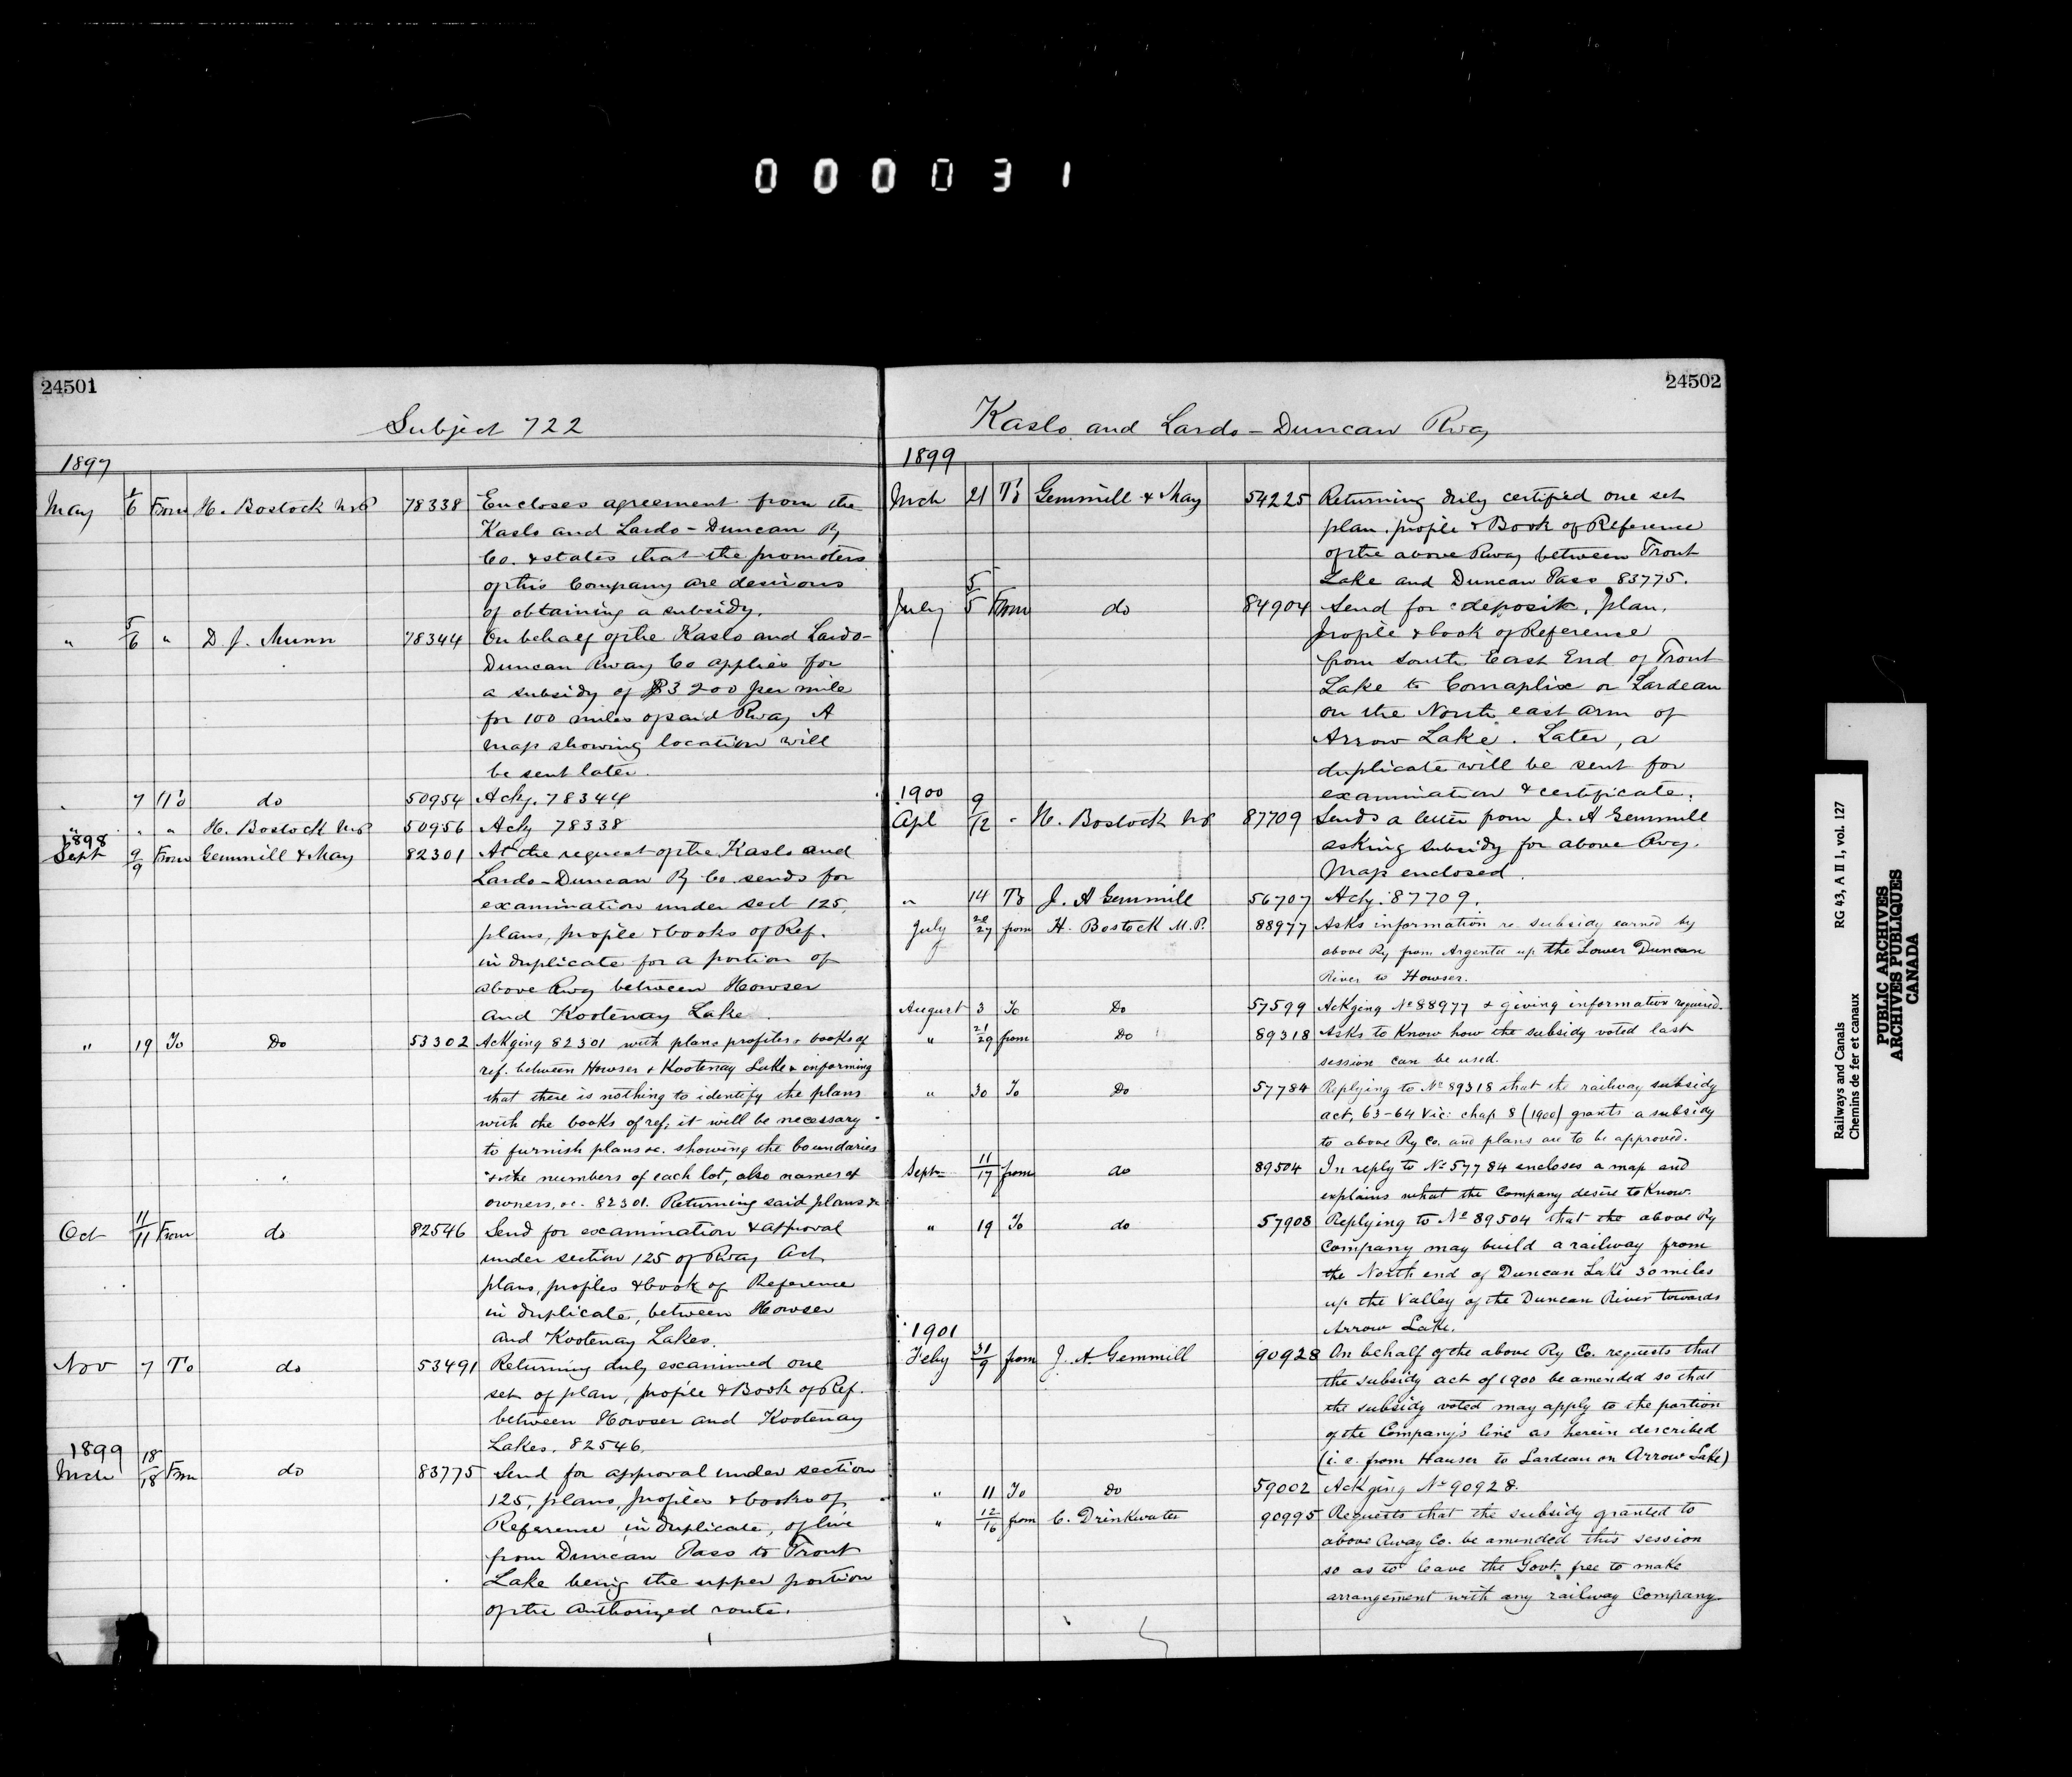 000031
24501
Subject 722
1897
May 1/6 From H. Bostock M.P 78338 Encloses agreement from the
Kaslo and Lardo-Duncan Ry
Co. & states that the promoters
of this Company are desirous
of obtaining a subsidy.
" 5/6 " D. J. Munn 78344 On behalf of the Kaslo and Lardo-
Duncan Rway Co applies for
a subsidy of $3200 per mile
for 100 miles of said Rway A
map showing location will
be sent later.
" 7 To do 50954 Ackg. 78344
" " " H. Bostock M.P 50956 Ackg 78338
1898
Sept 9/9 From Gemmill & May 82301 At the request of the Kaslo and
Lardo-Duncan Ry Co. sends for
examination under sect 125,
plans, profile & books of Ref.
in duplicate for a portion of
above Rwy between Howser
and Kootenay Lake.
" 19 To Do 53302 Ackging 82301 with plans profiles & books of
ref. between Howser & Kootenay Lake & informing
that there is nothing to identify the plans
with the books of ref, it will be necessary
to furnish plans &c. showing the boundaries
& the numbers of each lot, also names of
owners, &c. 82301. Returning said plans &c
Oct 11/11 From do 82546 Send for examination & approval
under section 125 of Rway Act,
plans, profiles & book of Reference
in duplicate, between Howser
and Kootenay Lakes.
Nov 7 To do 53491 Returning duly examined one
set of plan, profile & Book of Ref.
between Howser and Kootenay
Lakes. 82546.
1899
Mch 18/18 From do 83775 Send for approval under section
125, plans, profiles & books of
Reference in duplicate, of line
from Duncan Pass to Trout
Lake being the upper portion
of the authorized route.
24502
Kaslo and Lardo-Duncan Rway
1899
Mch 21 To Gemmill & May 54225 Returning duly certified one set
plan, profile & Book of Reference
of the above Rway between Trout
Lake and Duncan Pass 83775.
July 5/5 From do 84904 Send for deposit, plan,
profile & book of Reference
from South East End of Trout
Lake to Comaplix or Lardeau
on the North east arm of
Arrow Lake. Later, a
duplicate will be sent for
examination & certificate.
1900
Apl 9/12 " H. Bostock M.P 87709 Sends a letter from J. A Gemmill
asking subsidy for above Rwy.
Map enclosed.
" 14 To J. A Gemmill 56707 Ackg. 87709.
July 20/27 from H. Bostock M.P. 88977 Asks information re subsidy earned by
above Ry from Argenta up the Lower Duncan
River to Howser.
August 3 To Do 57599 Ackging No 88977 & giving information required.
" 21/29 from Do 89318 Asks to know how the subsidy voted last
session can be used.
" 30 To Do 57784 Replying to No 89318 that the railway subsidy
act, 63-64 Vic: chap 8 (1900) grants a subsidy
to above Ry Co. and plans are to be approved.
Sept 11/17 from do 89504 In reply to No 57784 encloses a map and
explains what the Company desire to know.
" 19 To do 57908 Replying to No 89504 that the above Ry
Company may build a railway from
the North end of Duncan Lake 30 miles
up the Valley of the Duncan River towards
Arrow Lake.
1901
Feby 31/9 from J. A. Gemmill 90928 On behalf of the above Ry Co. requests that
the subsidy act of 1900 be amended so that
the subsidy voted may apply to the portion
of the Company's line as herein described
(i.e. from Hauser to Lardeau on Arrow Lake)
" 11 To Do 59002 Ackging No 90928.
" 12/16 from C. Drinkwater 90995 Requests that the subsidy granted to
above Rway Co. be amended this session
so as to leave the Govt. free to make
arrangement with any railway Company
Railways and Canals RG 43, A II 1, vol. 127
Chemins de fer et canaux
PUBLIC ARCHIVES
ARCHIVES PUBLIQUES
CANADA